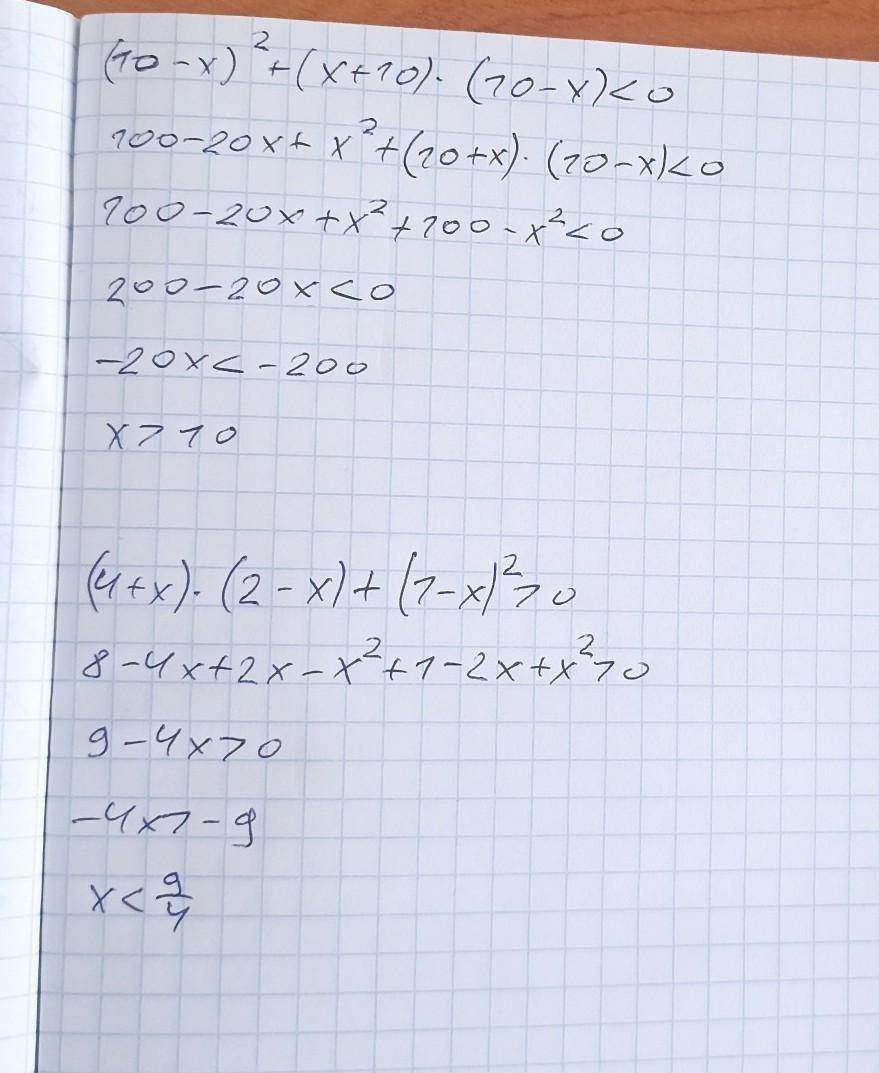 (10-x)²+(x+10)·(10-x)<0
100-20x+x²+(10+x)·(10-x)<0
100-20x+x²+100-x²<0
200-20x<0
-20x<-200
x>10
(4+x)·(2-x)+(1-x)²>0
8-4x+2x-x²+1-2x+x²>0
9-4x>0
-4x>-9
x<9/4